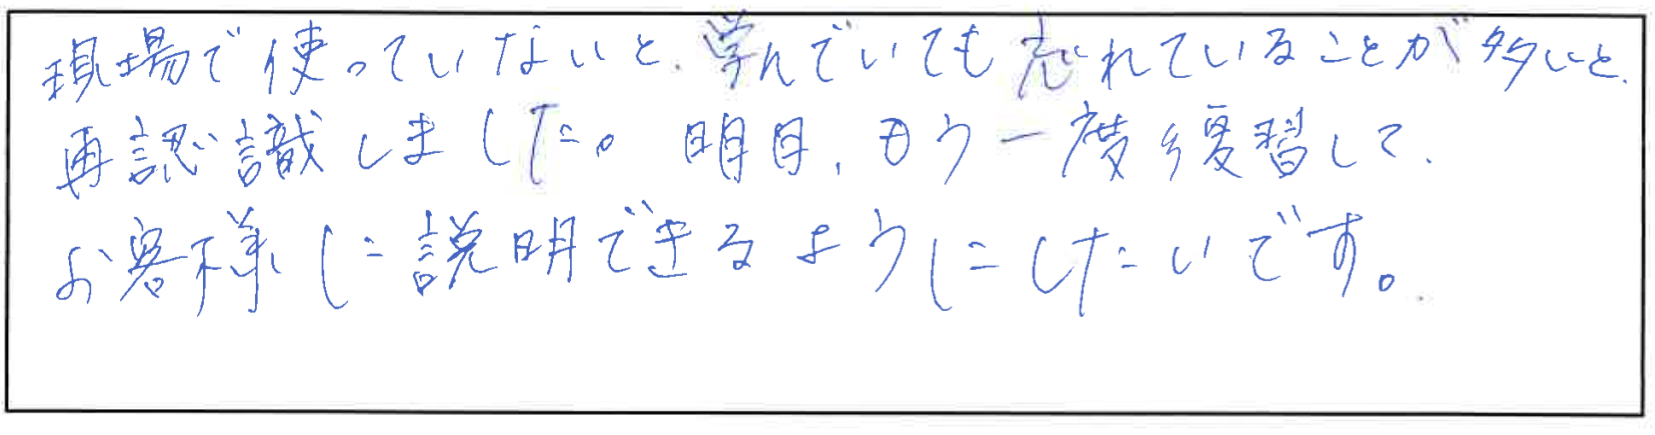 現場で使っていないと、学んでいても忘れていることが多いと、
再認識しました。明日、もう一度復習して、
お客様に説明できるようにしたいです。